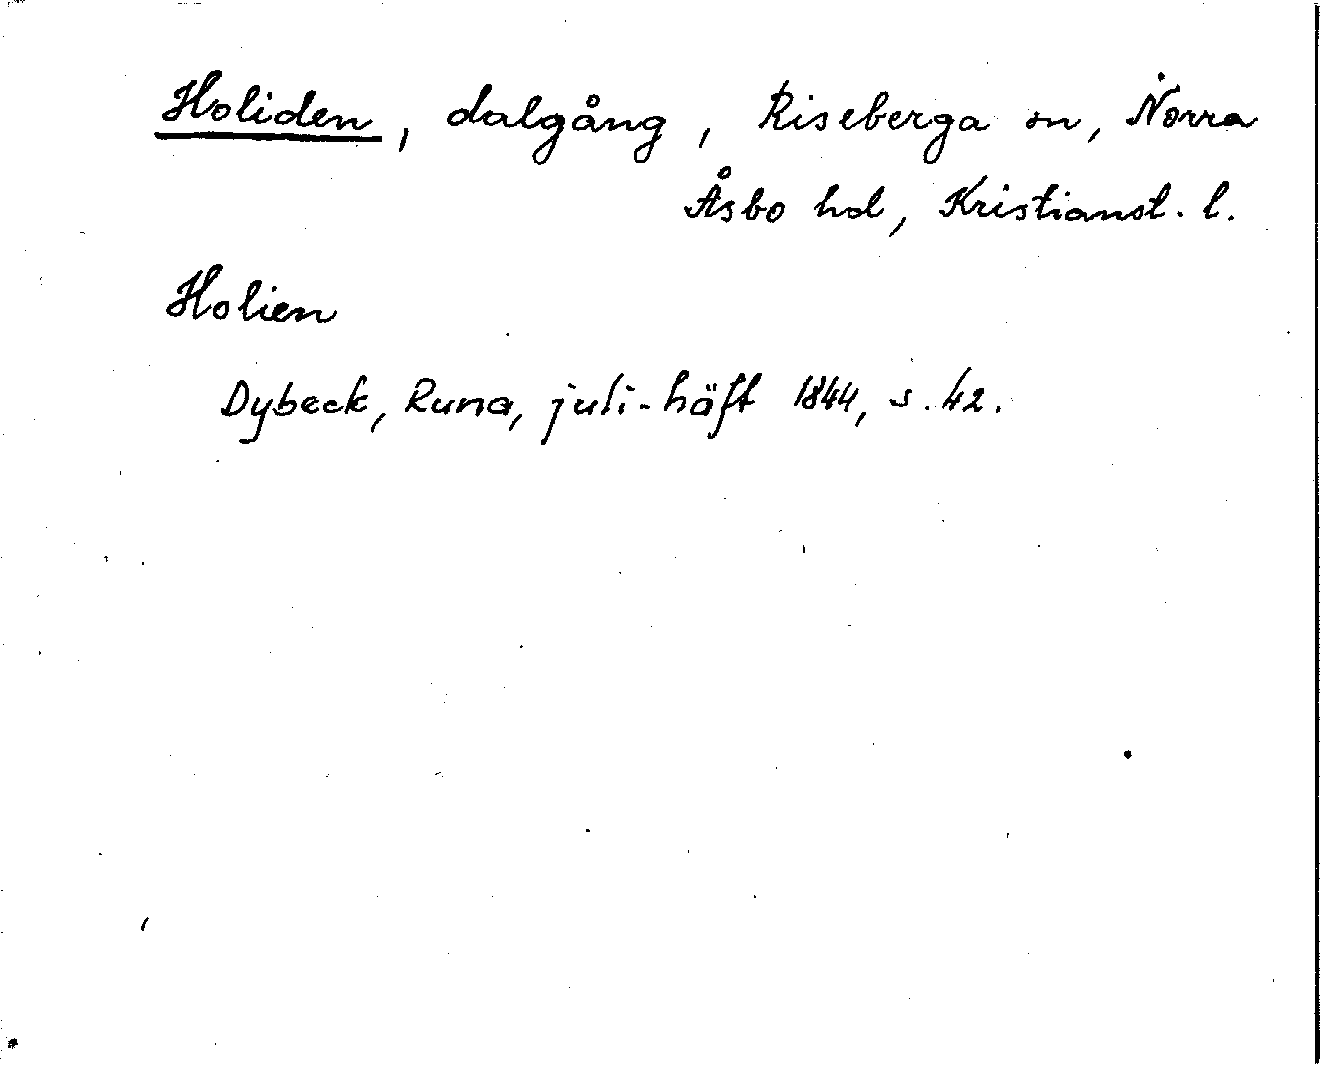 Holiden, dalgång, Riseberga sn, Norra
Åsbo hd, Kristianst. l.
Holien
Dybeck, Runa, juli-häft 1844, s. 42.